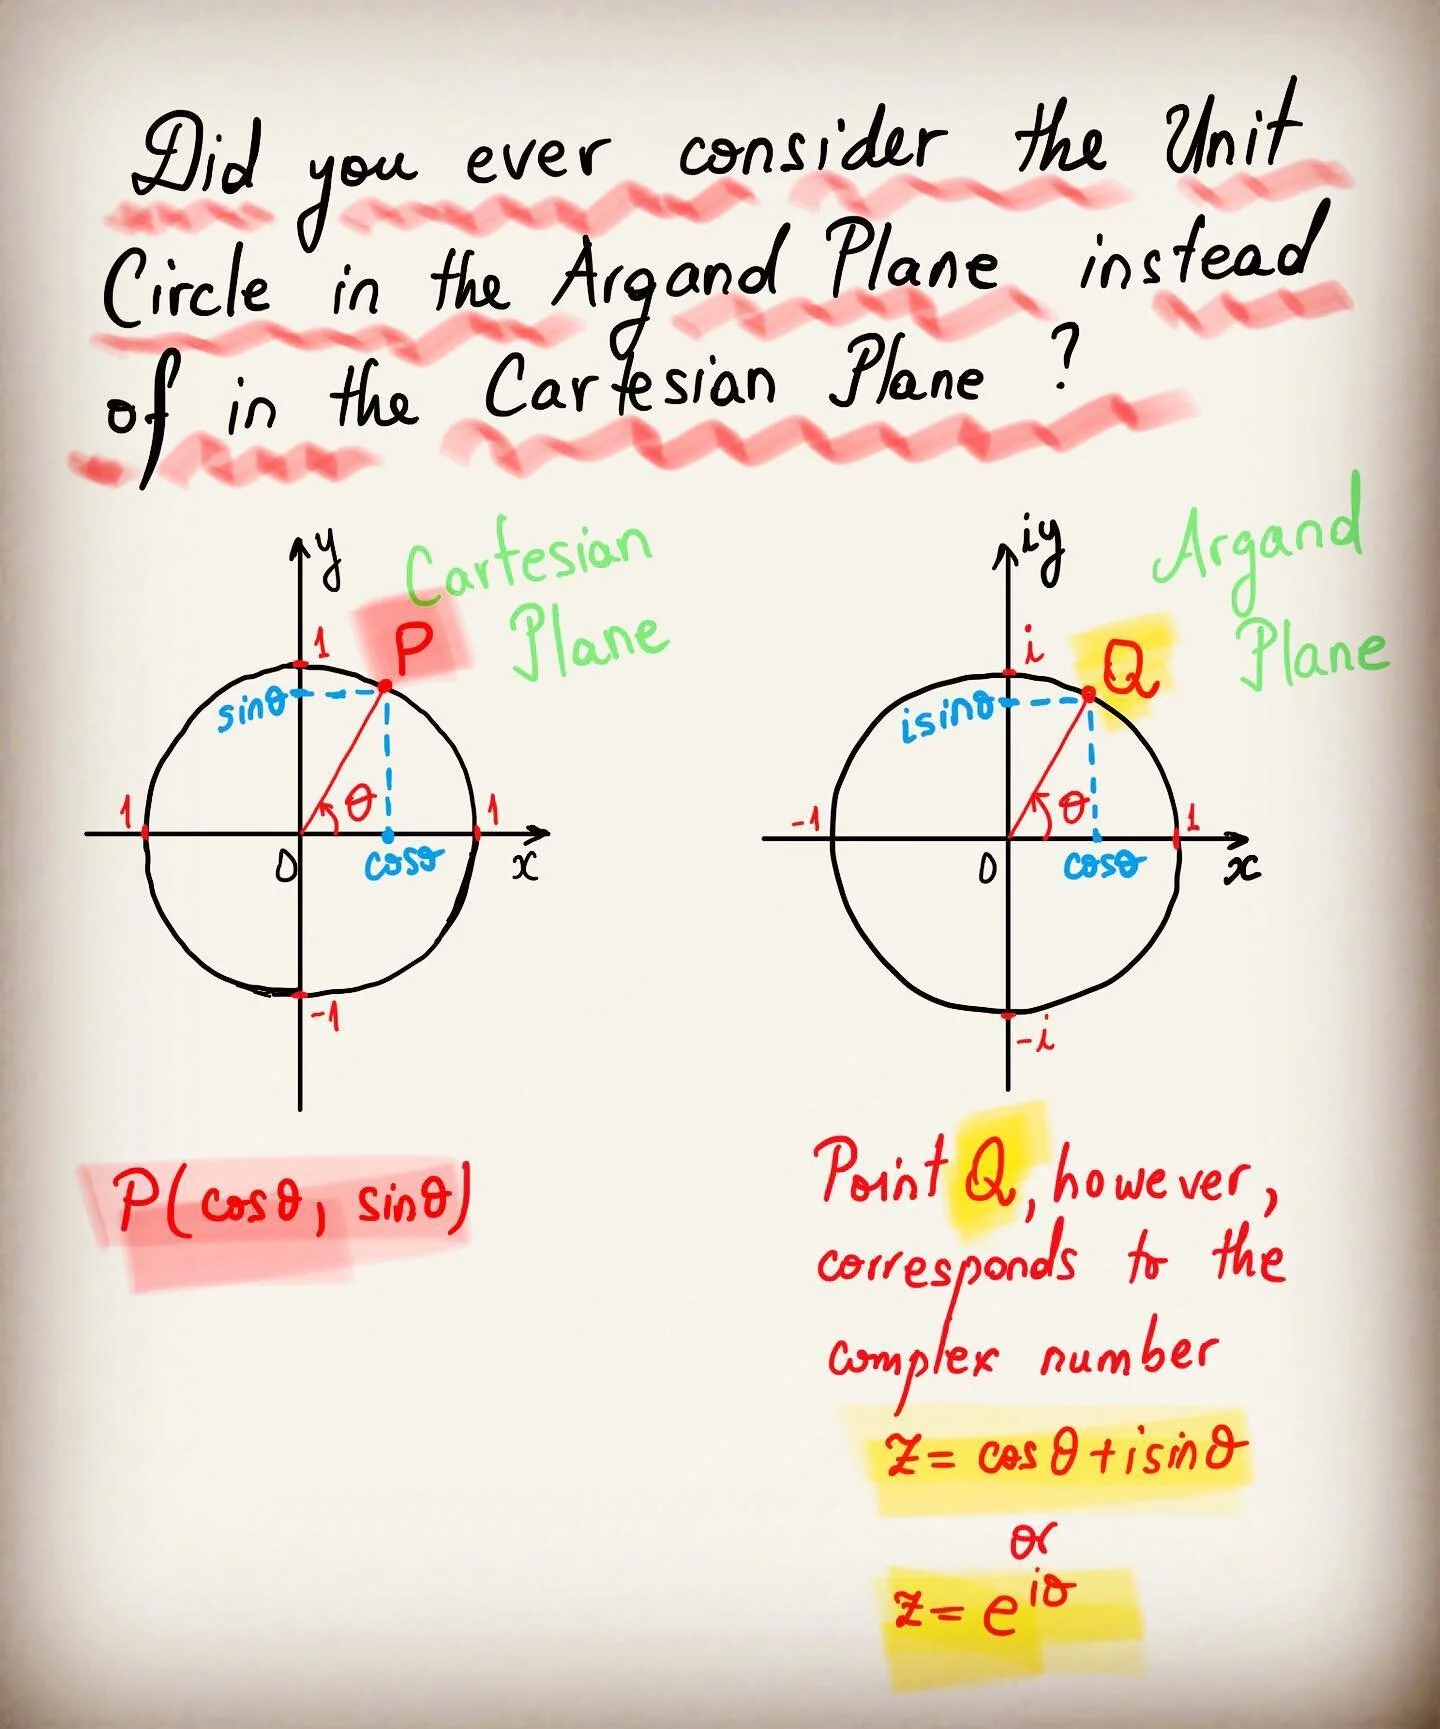 Did you ever consider the Unit
Circle in the Argand Plane instead
of in the Cartesian Plane ?
y
Cartesian
Plane
P
1
sinθ
θ
1
1
0
cosθ
x
-1
P(cosθ, sinθ)
iy
Argand
Plane
i
Q
isinθ
θ
-1
1
0
cosθ
x
-i
Point Q, however,
corresponds to the
complex number
z = cosθ + isinθ
or
z = e^iθ